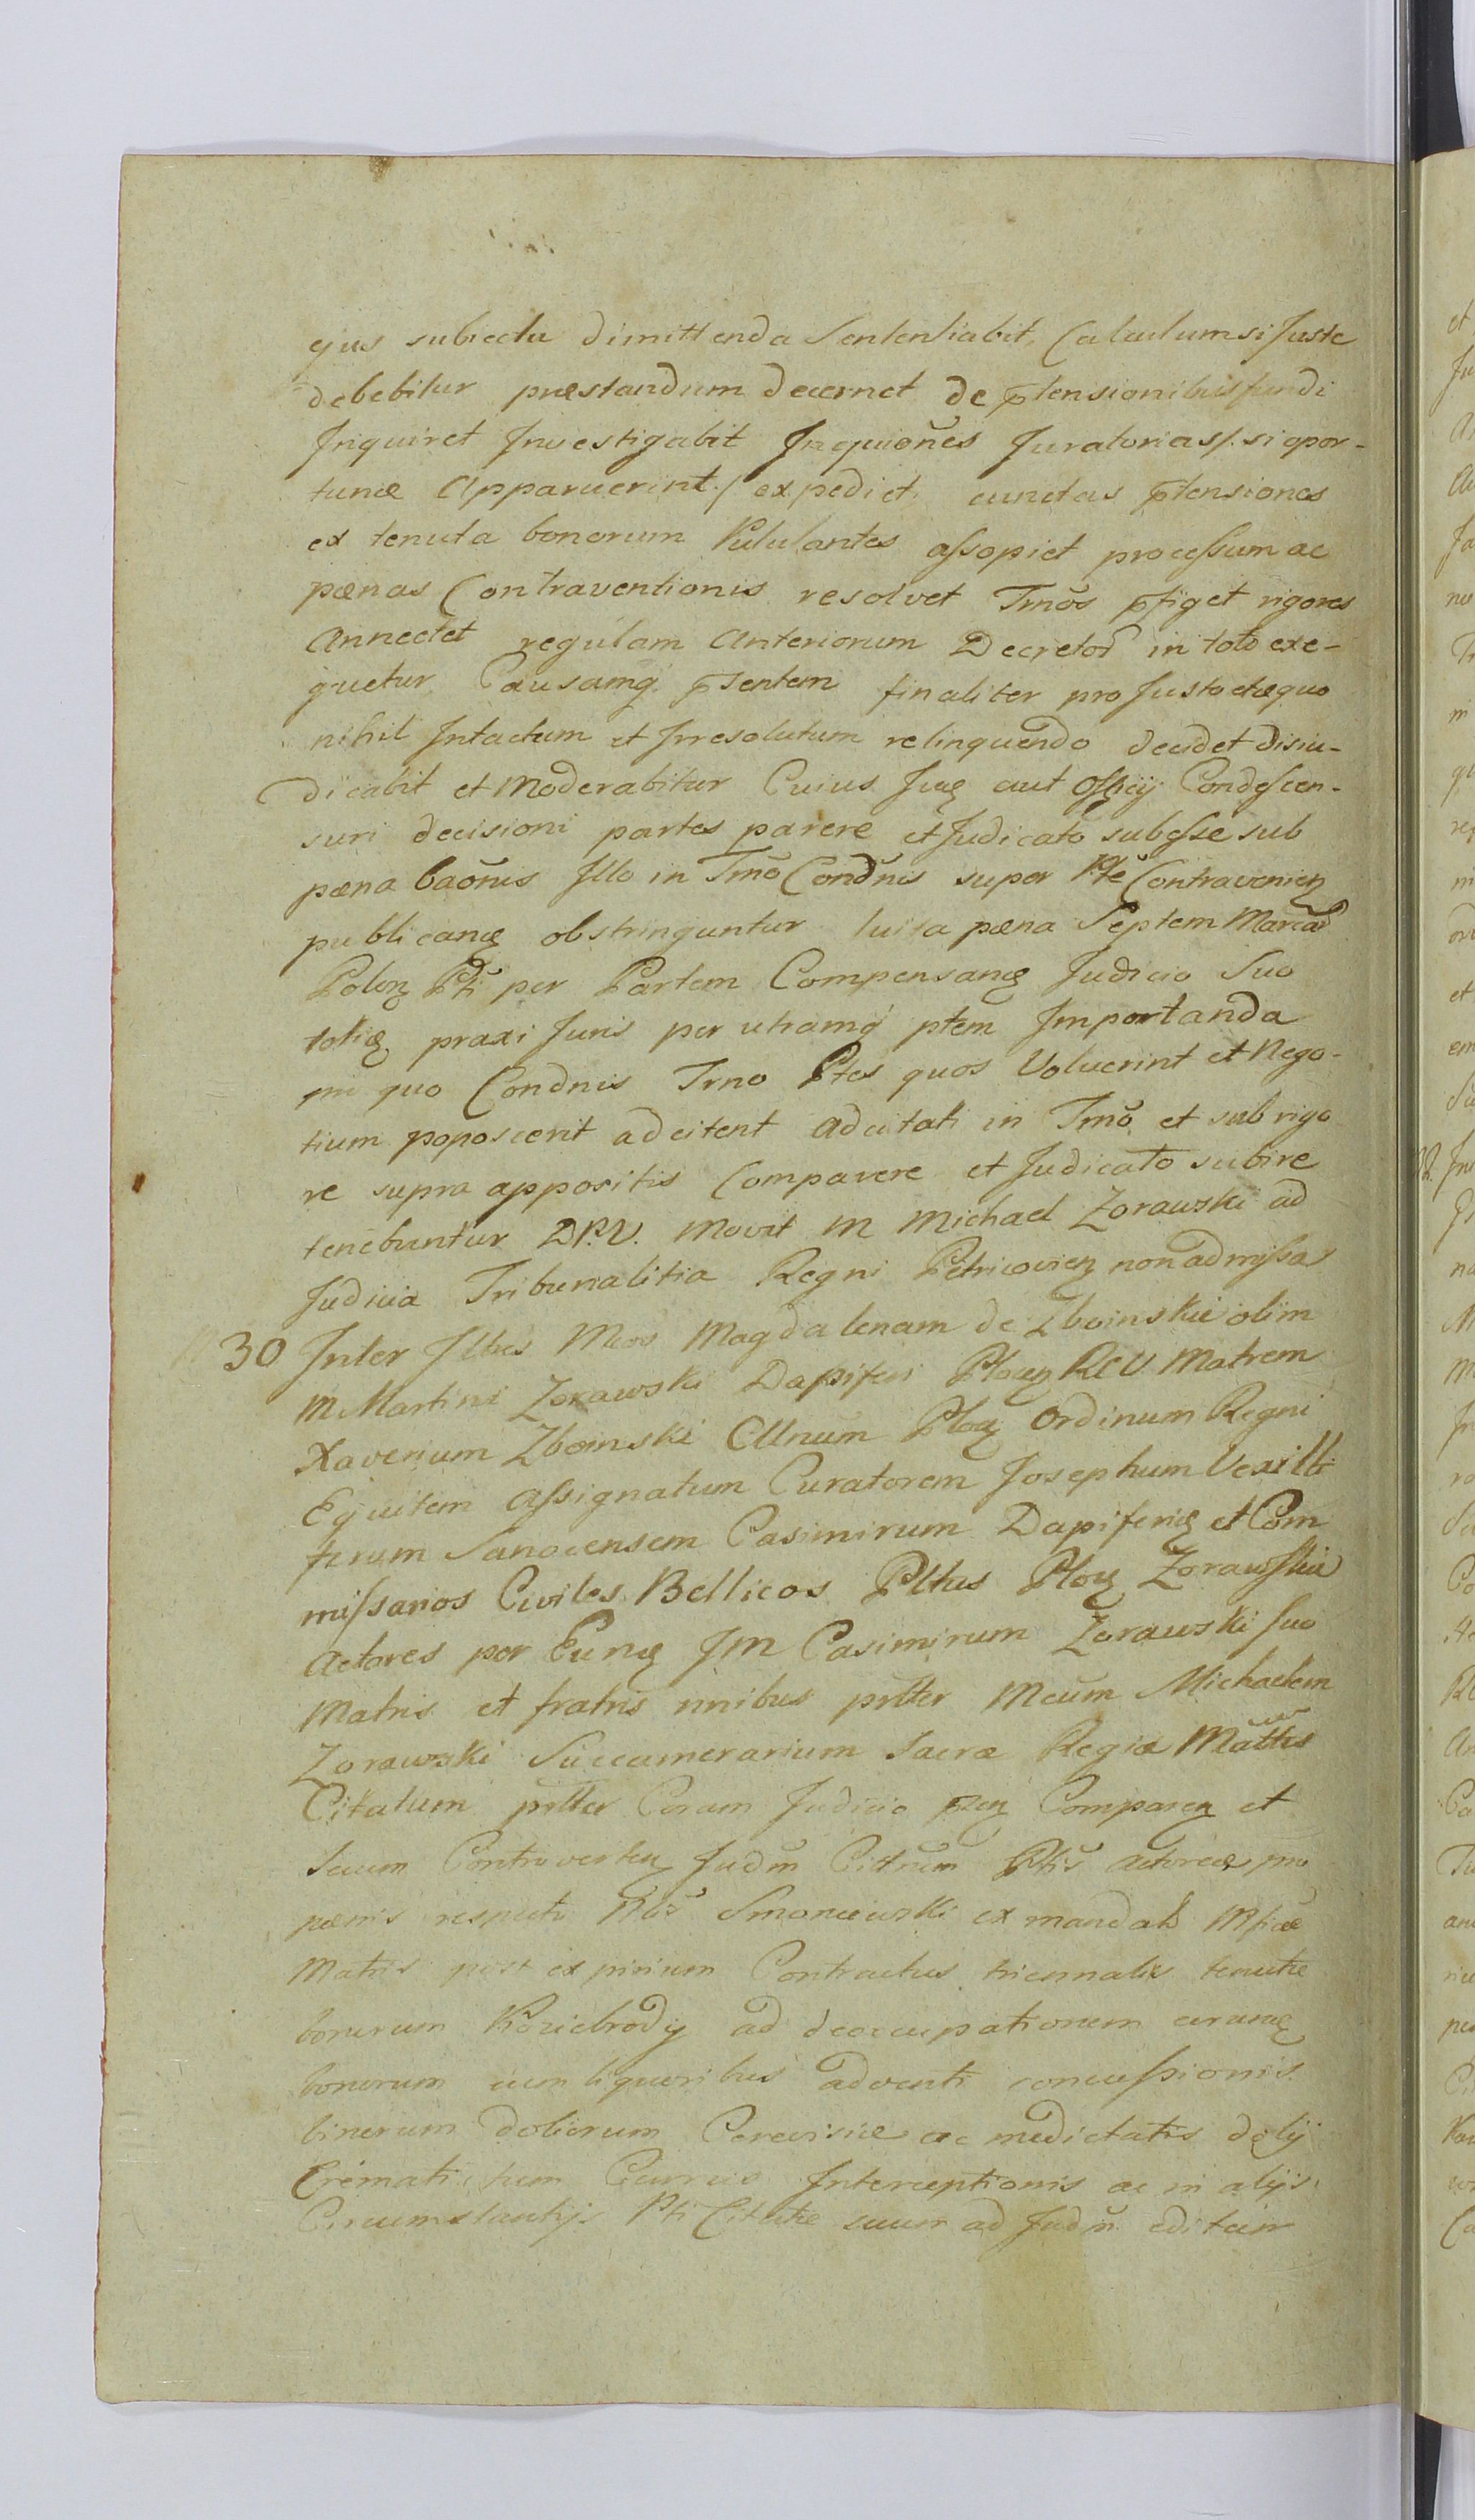 ejus subiecta dimittenda Sententiabit, Calculum si Juste
debebitur præstandum decernet de ptensionibus fundi
Inquiret Investigabit Inquiones Juratorias /. si opor-
tunæ Apparuerint ./ expediet cunctas ptensiones
ex tenuta bonorum Pululantes assopiet processum ac
pænas Contraventionis resolvet Trnos pfiget rigores
Annectet regulam Anteriorum Decretor in toto exe-
quetur Causamq psentem finaliter pro Justo et æquo
nihil Intactum et Irresolutum relinquendo decidet disiu-
dicabit et Moderabitur Cuius aut Officij Condescen-
suri decisioni partes parere et Judicato subesse sub
pæna baõnis Illo in Tmo Condnis super Pte Contravenien
publican obstringuntur luita pæna Septem Marcar
Polon Pti per Partem Compensan Judicio Suo
praxi Juris per utramq ptem Importanda
in quo Condnis Trno Ptes quos Voluerint et Nego-
tium poposcerit adcitent Adcitati in Tmo et sub rigo
re supra appositis Comparere et Judicato subire
tenebuntur D.P.V. Movit M Michael Zorawski ad
Judicia Tribunalitia Regni Petricovien non admissa
30 Inter Illres Mcos Magdalenam de Zboinskie olim
M Martini Zorawski Dapiferi Plocen RCV Matrem
Xaverium Zboinski Cllnum Ploc Ordinum Regni
Equitem Assignatum Curatorem Josephum Vexilli
ferum Sanocensem Casimirum Dapiferi et Com
missarios Civiles Bellicos Pltus Ploc Zorawskie
Actores per Eun JM Casimirum Zorawski suo
Matris et fratris nnibus prltter Mcum Michaelem
Zorawski Succamerarium Sacræ Regiæ Mattis
Citatum prltter Coram Judicio Comparen et
secum Controverten Judm Citnum Ptis actoreæ pro
pænis respectu Nbs Smoniewski ex mandato
Matris post expirium Contractus triennalis tenutæ
bonorum Koziebrody ad deoccupationem
bonorum cum liquoribus adventi concussionis
binorum doliorum Cerevisiæ ac medietatis dolij
Cremati tum Currus Interceptionis ac in alijs
Circumstantijs Pti Citatæ suum ad Judm editam